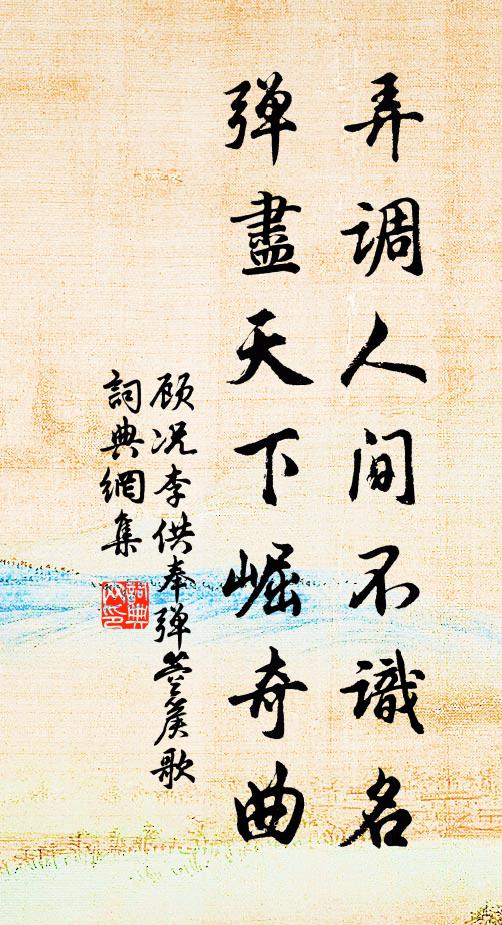 弄调人间不識名
弹盡天下崛奇曲
顾况李供奉弹箜篌歌
詞典網集